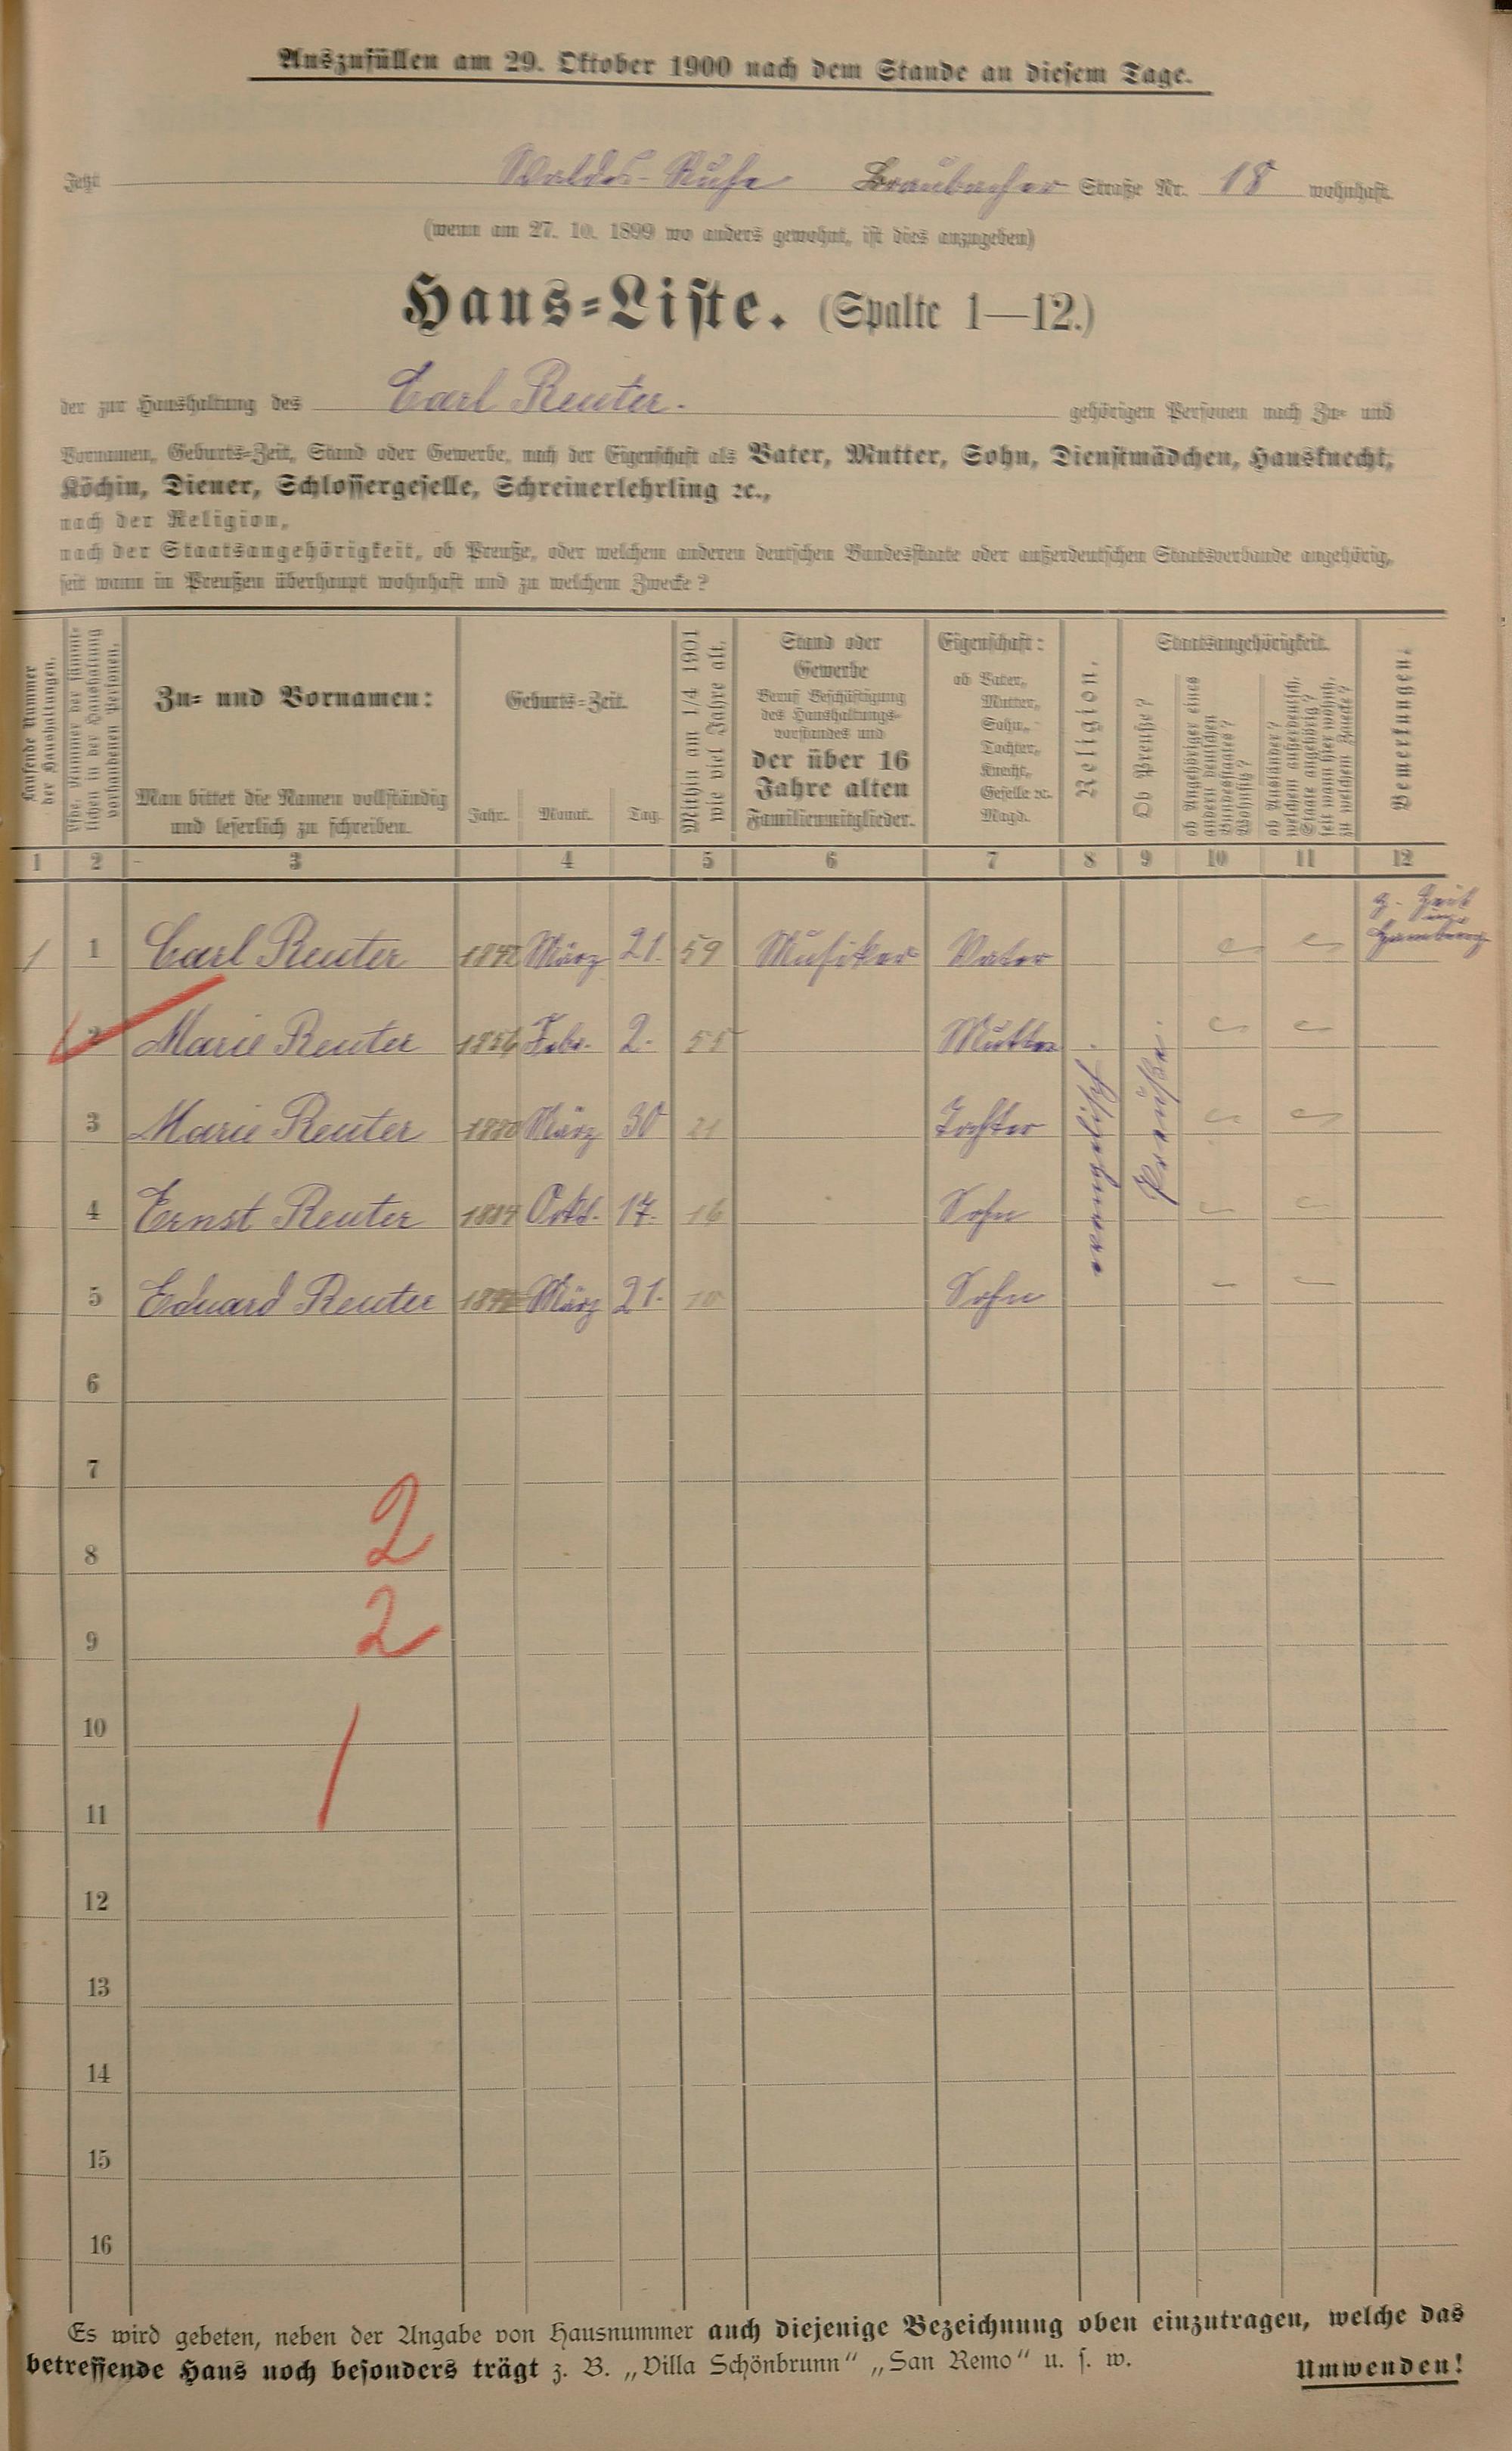 Auszufüllen am 29. Oktober 1900 nach dem Stande an diesem Tage.
Jetzt Waldes-Ruhe Braubacher Straße Nr. 18 wohnhaft.
(wenn am 27. 10. 1899 wo anders gewohnt, ist dies anzugeben)
Haus=Liste. (Spalte 1—12.)
der zur Haushaltung des Carl Reuter. gehörigen Personen nach Zu= und
Vornamen, Geburts=Zeit, Stand oder Gewerbe, nach der Eigenschaft als Vater, Mutter, Sohn, Dienstmädchen, Hausknecht,
Köchin, Diener, Schlossergeselle, Schreinerlehrling ꝛc.,
nach der Religion,
nach der Staatsangehörigkeit, ob Preuße, oder welchem anderen deutschen Bundesstaate oder außerdeutschen Staatsverbande angehörig,
seit wann in Preußen überhaupt wohnhaft und zu welchem Zwecke?
Laufende Nummer
der Haushaltungen.
Lfde. Nummer der sämmt=
lichen in der Haushaltung
vorhandenen Personen.
Zu= und Vornamen:
Man bittet die Namen vollständig
und leserlich zu schreiben.
Geburts=Zeit.
Jahr. Monat. Tag.
Mithin am 1/4 1901
wie viel Jahre alt.
Stand oder
Gewerbe
Beruf Beschäftigung
des Haushaltungs=
vorstandes und
der über 16
Jahre alten
Familienmitglieder.
Eigenschaft:
ob Vater,
Mutter,
Sohn,
Tochter,
Knecht,
Geselle ꝛc.
Magd.
Religion.
Staatsangehörigkeit.
Ob Preuße?
ob Angehöriger eines
andern deutschen
Bundesstaates?
Wohnsitz?
ob Ausländer?
welchem außerdeutsch.
Staate angehörig?
seit wann hier wohnh.
zu welchem Zwecke?
Bemerkungen.
1 2 3 4 5 6 7 8 9 10 11 12
z. Zeit
in
Hamburg
1 1 Carl Reuter 1842 März 21. 59 Musiker Vater
2 Marie Reuter 1846 Febr. 2. 55 Mutter
3 Marie Reuter 1880 März 30 21 Tochter
4 Ernst Reuter 1884 Okt. 17. 16 Sohn
5 Eduard Reuter März 21. 10 Sohn
evangelisch.
Preuße.
6
7
2
8
2
9
10
1
11
12
13
14
15
16
Es wird gebeten, neben der Angabe von Hausnummer auch diejenige Bezeichnung oben einzutragen, welche das
betreffende Haus noch besonders trägt z. B. „Villa Schönbrunn“ „San Remo“ u. s. w. Umwenden!